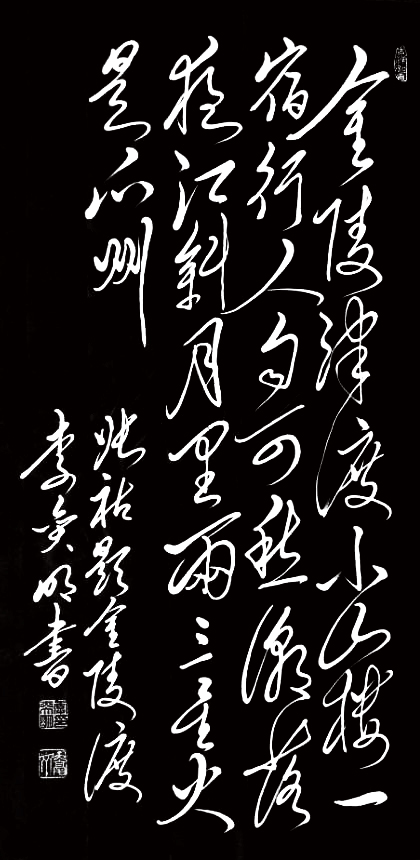 金陵津渡小山樓一
宿行人自可愁潮落
夜江斜月里兩三星火
是瓜州
張祜題金陵渡
李明書